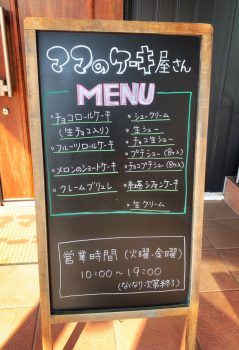 ママのケーキ屋さん
MENU
・チョコロールケーキ
(生チョコ入り)
・フルーツロールケーキ
・メロンのショートケーキ
・クレームブリュレ
・シュークリーム
・生シュー
・チョコ生シュー
・プチシュー(8コ入)
・チョコプチシュー(8コ入)
・紅茶シフォンケーキ
・生クリーム
営業時間(火曜・金曜)
10:00～19:00
(なくなり次第終了)